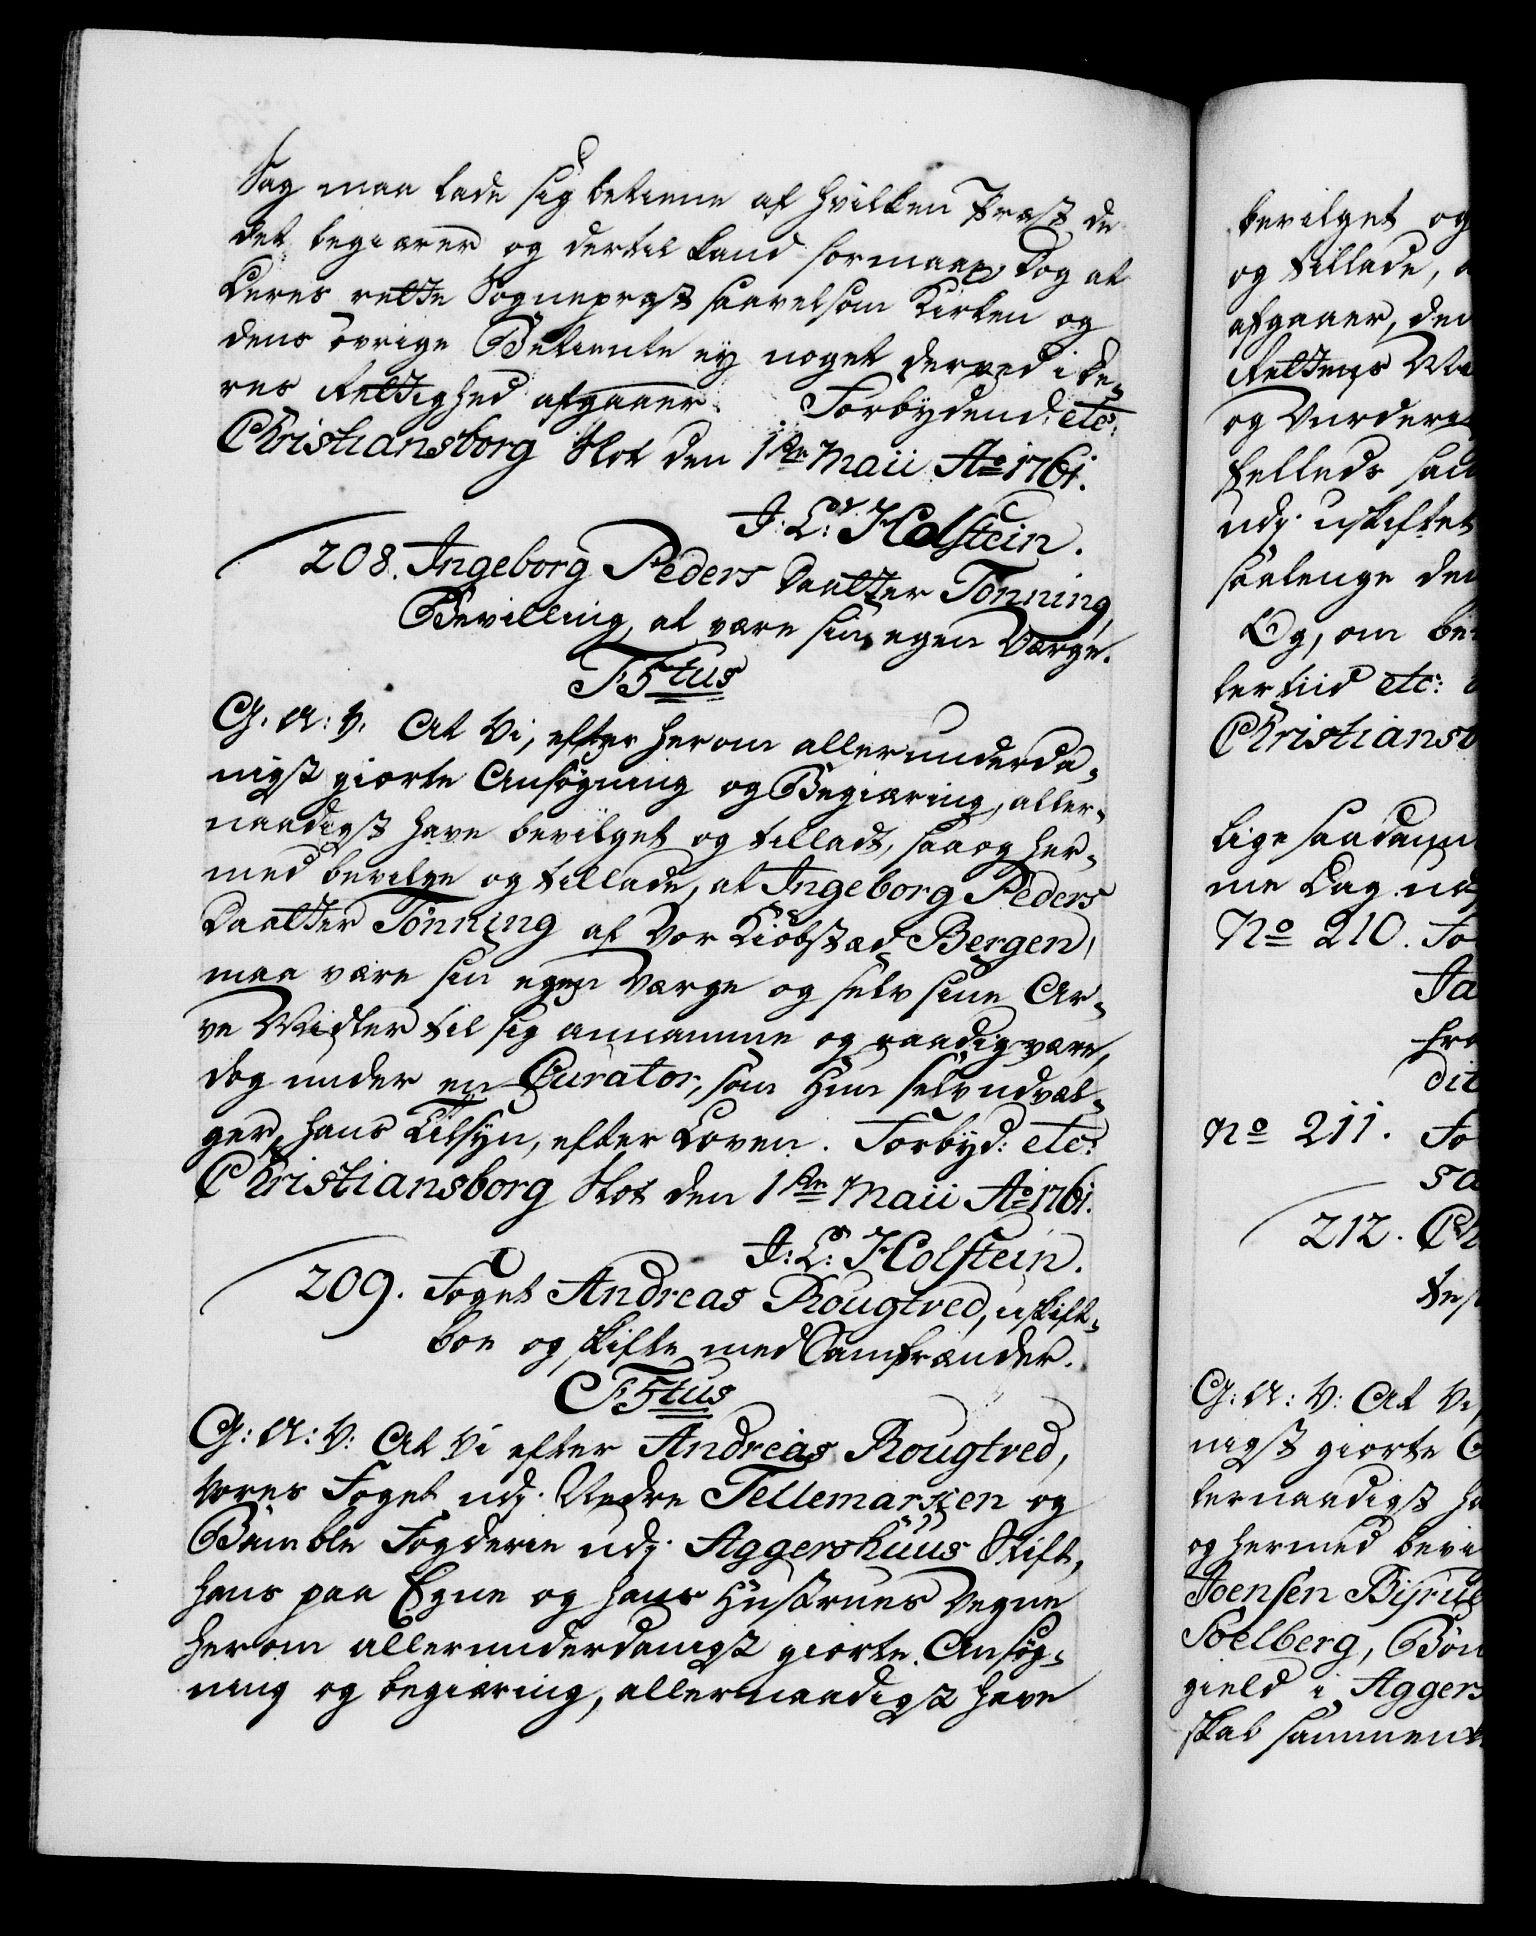 Sag maa lade sig betiene af hvilken Præst de
det begiærer og dertil kand formaae, Dog at
Deres rette Sognepræst saavelsom Kirken og
dens övrige Betiente ej noget derved i de-
res Rettighed afgaaer. Forbydend: etc:
Christiansborg Slot den 1ste Maii Ao 1761.
J: L: v. Holstein.
208. Ingeborg Peders Daatter Tönning,
Bevilling, at være sin egen Værge.
F5tus
G. A: V. At Vi, efter herom allerunderda-
nigst giorte Ansögning og Begiæring, aller-
naadigst have bevilget og tilladt, saa og her-
med bevilge og tillade, at Ingeborg Peders
Daatter Tönning af Vor Kiöbstæd Bergen,
maa være sin egen Værge og selv sine Ar-
ve Midler til sig annamme og raadig være,
dog under en Curator, som Hun selv udvæl-
ger, hans Tilsyn, efter Loven. Forbyd: etc:
Christiansborg Slot den 1ste Maii Ao 1761.
J: L: v. Holstein.
209. Foget Andreas Rougtved, uskift-
boe og skifte med Samfrænder.
F5tus
G: A: V: At Vi efter Andreas Rougtved,
Vores Foget udj Nedre Tellemarken og
Bamble Fogderie udj Aggershuus Stift,
hans paa Egne og hans Hustrues Vegne
herom allerunderdanigst giorte Ansög-
ning og begiæring, allernaadigst have
bevilget og
og tillade,
afgaaer, den
Rettens
og Vurderet
fælleds
udj uskiftet
saalenge den
Og, om
lertiid etc:
Christiansb
lige saadann
me Dag
No 210. Fo
Ja
fra
dit
No 211. Fo
sa
212. Ch
G: A: V: At Vi
nigst giorte
lernaadigst ha
og hermed bevi
Joensen
Soelberg, Bön
gield i Aggers
skab sammen